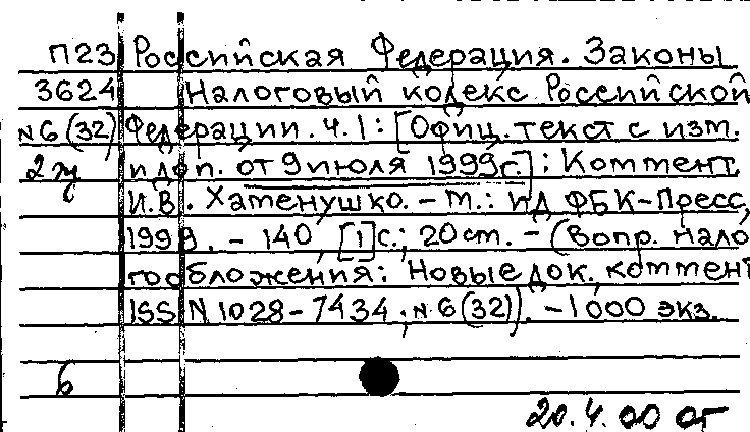 П23 Российская Федерация. Законы
3624 Налоговый кодекс Российской
N6(32) Федерации. Ч.1: [Офиц. текст с изм.
2 и доп. от 9 июля 1999г.]: Коммент.
И.В. Хаменушко. – М.: ИД ФБК-Пресс,
1999. – 140, [1]с.; 20см. – (Вопр. нало
гообложения: Новые док., коммент
ISSN 1028-7434; N6(32)). – 1000 экз.
6
20.4.00